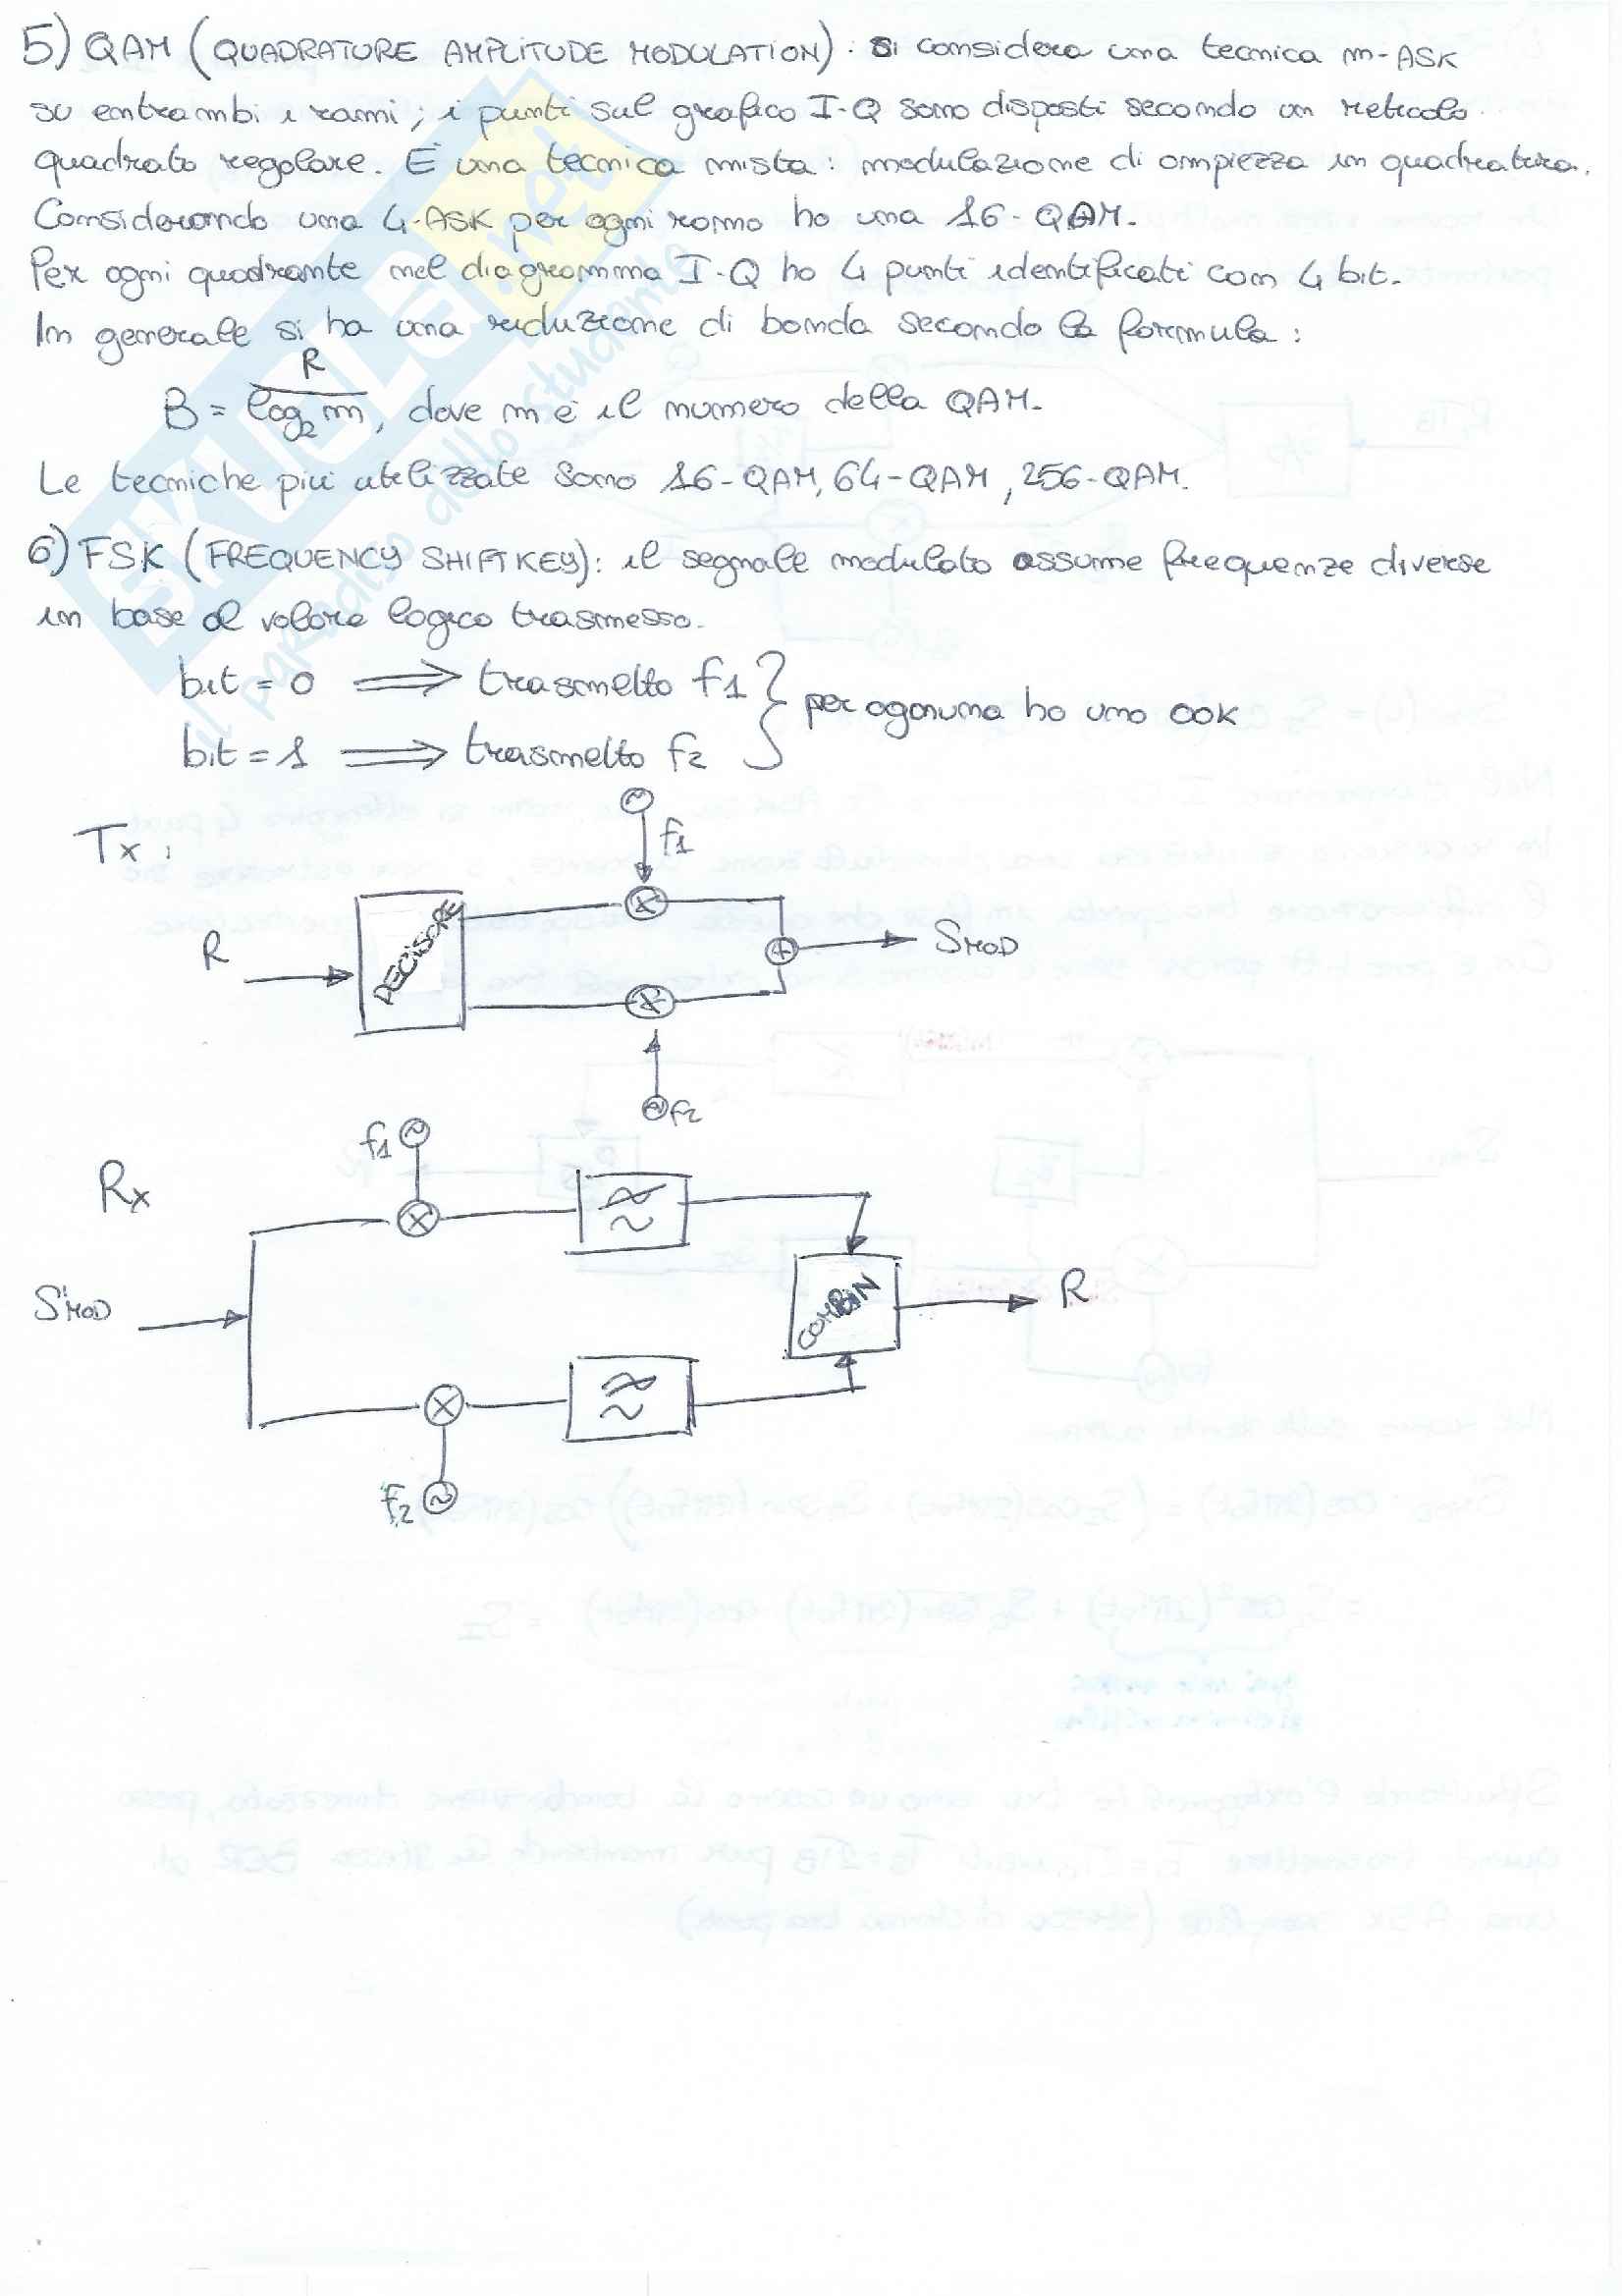 5) QAM (QUADRATURE AMPLITUDE MODULATION): si considera una tecnica m-ASK
su entrambi i rami; i punti sul grafico I-Q sono disposti secondo un reticolo
quadrato regolare. È una tecnica mista: modulazione di ampiezza in quadratura.
Considerando una 4-ASK per ogni ramo ho una 16-QAM.
Per ogni quadrante nel diagramma I-Q ho 4 punti identificati con 4 bit.
In generale si ha una riduzione di banda secondo la formula:
B = R / log2 m, dove m è il numero della QAM.
Le tecniche più utilizzate sono 16-QAM, 64-QAM, 256-QAM.
6) FSK (FREQUENCY SHIFT KEY): il segnale modulato assume frequenze diverse
in base al valore logico trasmesso.
bit = 0 ⟹ trasmetto f1
bit = 1 ⟹ trasmetto f2
} per ogonuna ho uno OOK
Tx:
f1
R
DECISORE
SMOD
f2
Rx
f1
S'MOD
COMBIN
R
f2
SKUOLA.net
il paradiso dello studente